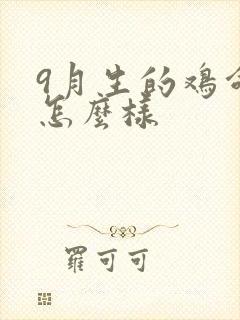 9月生的鸡命
怎麼樣
羅可可